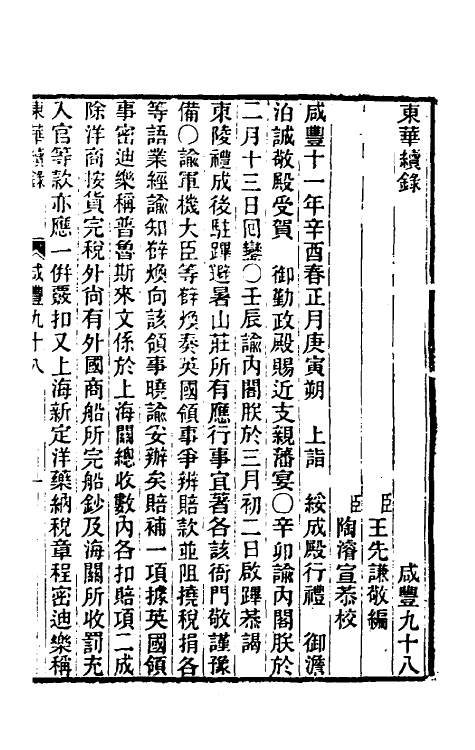 東華續錄 咸豐九十八
臣王先謙敬編
臣陶濬宣恭校
咸豐十一年辛酉春正月庚寅朔 上詣 綏成殿行禮 御澹
泊誠敬殿受賀 御勤政殿賜近支親藩宴○辛卯諭內閣朕於
二月十三日回鑾○壬辰諭內閣朕於三月初二日啟蹕恭謁
東陵禮成後駐蹕避暑山莊所有應行事宜著各該衙門敬謹豫
備○諭軍機大臣等薛煥奏英國領事爭辨賠款並阻撓稅捐各
等語業經諭知薛煥向該領事曉諭妥辦矣賠補一項據英國領
事密迪樂稱普魯斯來文係於上海關總收數內各扣賠項二成
除洋商按貨完稅外尚有外國商船所完船鈔及海關所收罰充
入官等款亦應一併覈扣又上海新定洋藥納稅章程密迪樂稱
東華續錄 咸豐九十八 一